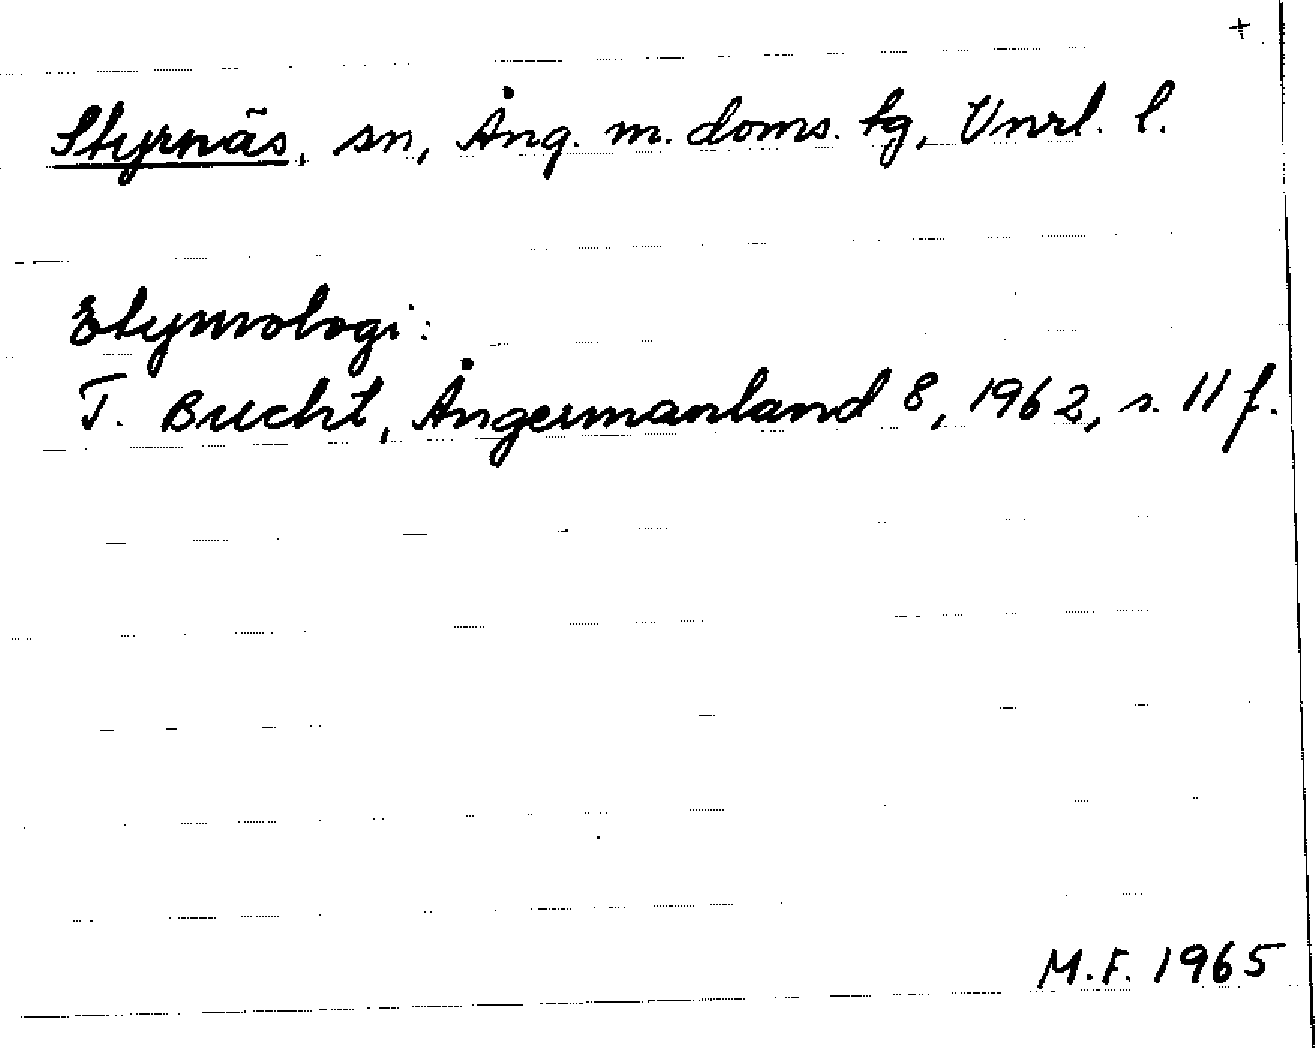 +
Styrnäs, sn, Ång. m. doms. tg, Vnrl. l.
Etymologi:
T. Bucht, Ångermanland 8, 1962, s. 11 f.
M.F. 1965